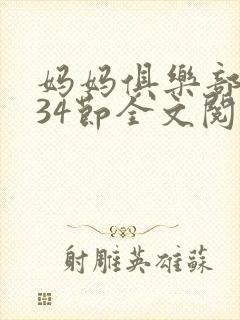 妈妈俱樂部
34节全文閱
射雕英雄蘇